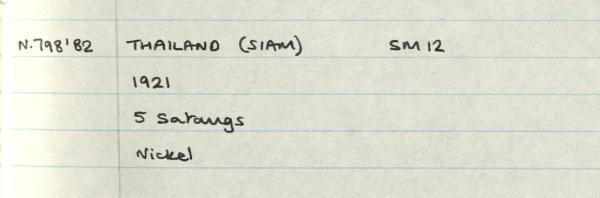 N.798'82 THAILAND (SIAM) SM 12
1921
5 Satangs
Nickel